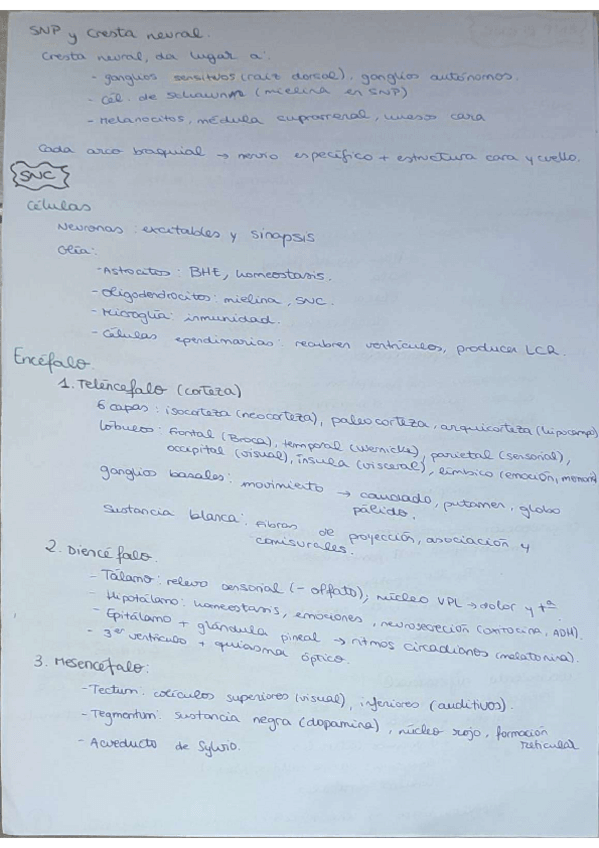 SNP y cresta neural.
Cresta neural, da lugar a:
- ganglios sensitivos (raíz dorsal), ganglios autónomos.
- cél. de Schawnn (mielina en SNP)
- Melanocitos, médula suprarrenal, hueso cara
Cada arco braquial → nervio específico + estructura cara y cuello.
SNC
Células
Neuronas: excitables y sinapsis
Glía:
- Astrocitos: BHE, homeostasis.
- Oligodendrocitos: mielina, SNC.
- Microglía: inmunidad.
- Células ependimarias: recubren ventrículos, producen LCR.
Encéfalo
1. Telencéfalo (corteza)
6 capas: isocorteza (neocorteza), paleocorteza, arquicorteza (hipocampo)
Lóbulos: frontal (Broca), temporal (Wernicke), parietal (sensorial),
occipital (visual), ínsula (visceral), límbico (emoción, memori
ganglios basales: movimiento → caudado, putamen, globo
pálido.
Sustancia blanca: fibras de proyección, asociación y
comisurales.
2. Diencéfalo.
- Tálamo: relevo sensorial (- olfato), núcleo VPL → dolor y tª
- Hipotálamo: homeostasis, emociones, neurosecreción (oxitocina, ADH).
- Epitálamo + glándula pineal → ritmos circadianos (melatonina).
- 3er ventrículo + quiasma óptico.
3. Mesencéfalo:
- Tectum: colículos superiores (visual), inferiores (auditivos).
- Tegmentum: sustancia negra (dopamina), núcleo rojo, formación
reticular
- Acueducto de Sylvio.